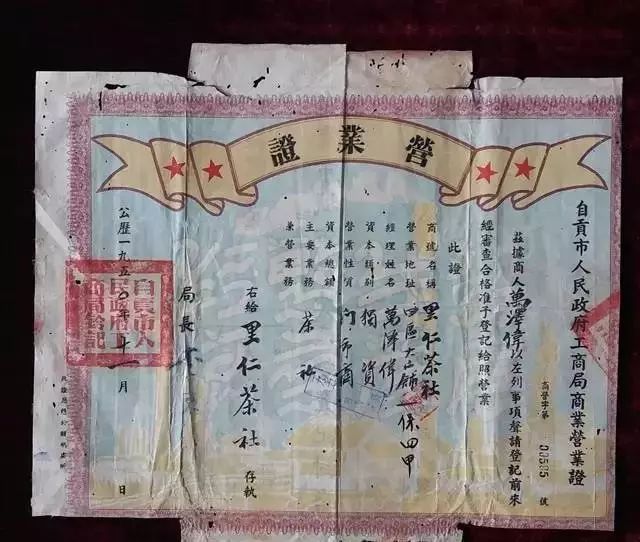 營業證
自貢市人民政府工商局商業營業證
商營字第00585號
茲據商人萬澤偉以左列事項聲請登記前來
經審查合格准予登記給照營業
此證
商號名稱 里仁茶社
營業地址 四區大正街一保四甲
經理姓名 萬澤偉
資本類別 獨資
營業性質 門市商
資本總額
主要業務 茶社
兼營業務
右給里仁茶社存執
局長
公歷一九五〇年十一月 日
自貢市人民政府工商局鈐記